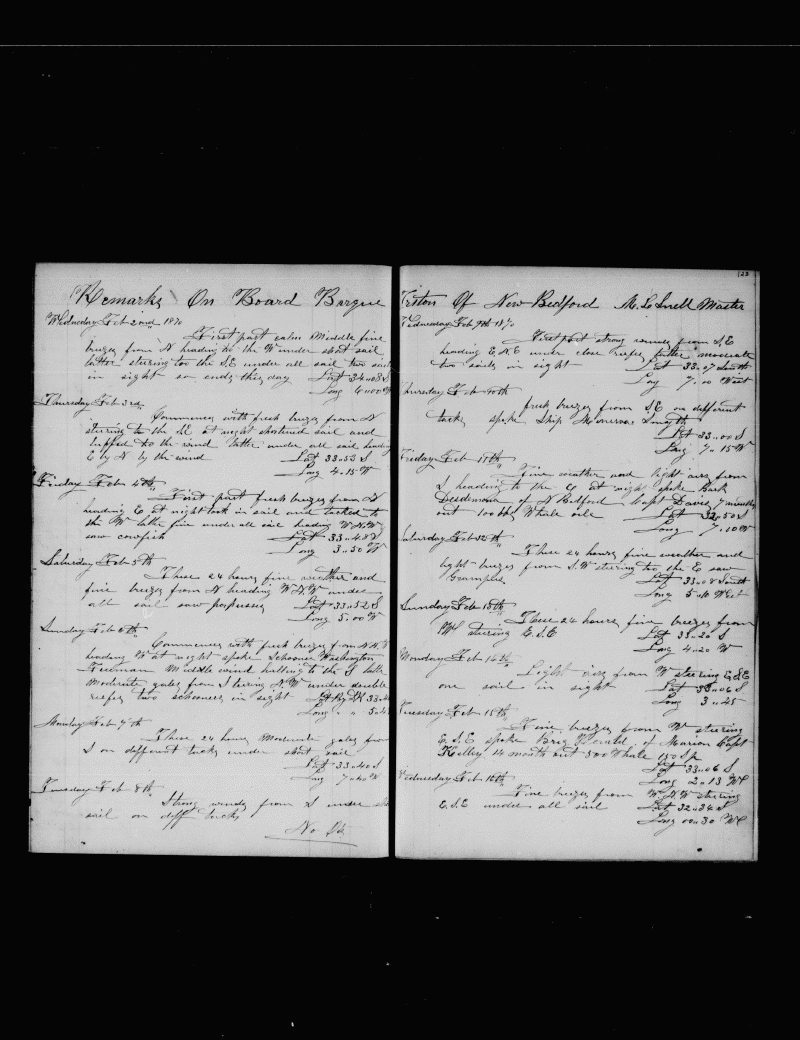 Remarks On Board Barque
Wednesday Feb 2nd 1870
First part calm Middle fine
breezes from N heading to the W under short sail
latter stering too the S.E under all sail two sails
in sight so ends this day Lat 34"08 S
Long 4"00 W
Thursday Feb 3rd
Commences with fresh breezes from N
stering to the SE at night shortened sail and
luffed to the wind latter under all sail heading
E by N by the wind Lat 33"53 S
Long 4"15 W
Friday Feb 4th
First part fresh breezes from N
heading E at night took in sail and tacked to
the W latter fine under all sail heading W.N.W
saw cowfish Lat 33"48 S
Long 3"50 W
Saturday Feb 5th
These 24 hours fine weather and
fine breezes from N heading W.N.W under
all sail saw porpoises Lat 33"52 S
Long 5"00 W
Sunday Feb 6th
Commences with fresh breezes from N.N.W
heading W at night spoke Schooner Washington
Freeman Middle wind hulling to the S latter
Moderate gales from S steering N.W under double
reefs two schooners in sight Lat By DR 33"
Long " " 5"
Monday Feb 7th
These 24 hours Moderate gales from
S on different tacks under short sail
Lat 33"40 S
Long 7"40 W
Tuesday Feb 8th
Strong winds from S under
sail on diff tacks
No Ob
123
Triton Of New Bedford M. L. Snell Master
Wednesday Feb 9th 1870
First part strong winds from S.E
heading E.N.E under close reefs latter moderate
two sails in sight Lat 33"07 South
Long 7"00 West
Thursday Feb 10th
fresh breezes from S.E on different
tacks spoke Ship Smyth
Lat 33"00 S
Long 7"15 W
Friday Feb 11th
Fine weather and light airs from
S heading to the E at night spoke Bark
Desdemona of N Bedford Capt Davis 7 months
out 100 bbls Whale oile Lat 32"50 S
Long 7"10 W
Saturday Feb 12th
These 24 hours fine weather and
light breezes from S.W steering to the E saw
Grampus Lat 33"08 South
Long 5"10 West
Sunday Feb 13th
These 24 hours fine breezes from
W steering E.S.E Lat 33"20 S
Long 4"20 W
Monday Feb 14th
Light airs from W steering E.S.E
one sail in sight Lat 33"06 S
Long 3"45
Tuesday Feb 15th
Fine breezes from W steering
E.S.E spoke Brig of Marion Capt
Kelley 14 month out 500 Whale 150 Sp
Lat 33"06 S
Long 2"13 W
Wednesday Feb 16th
Fine breezes from W.N.W steering
E.S.E under all sail Lat 32"34 S
Long 00"30 W